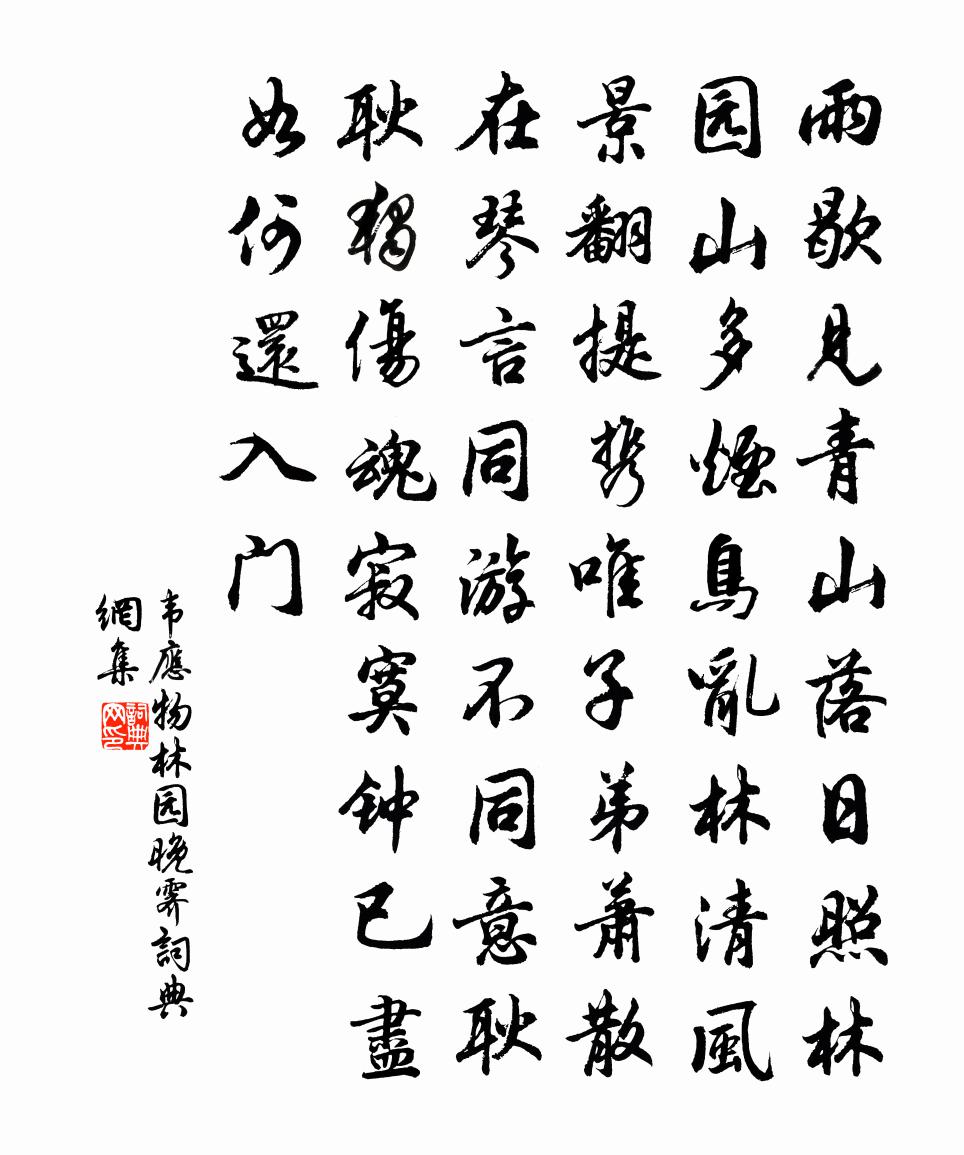 雨歇见青山落日照林
园山多烟鳥亂林清風
景翻提携唯子弟萧散
在琴言同游不同意耿
耿獨傷魂寂寞钟已盡
如何還入门
韦應物林园晚霽詞典
網集
詞典
网印